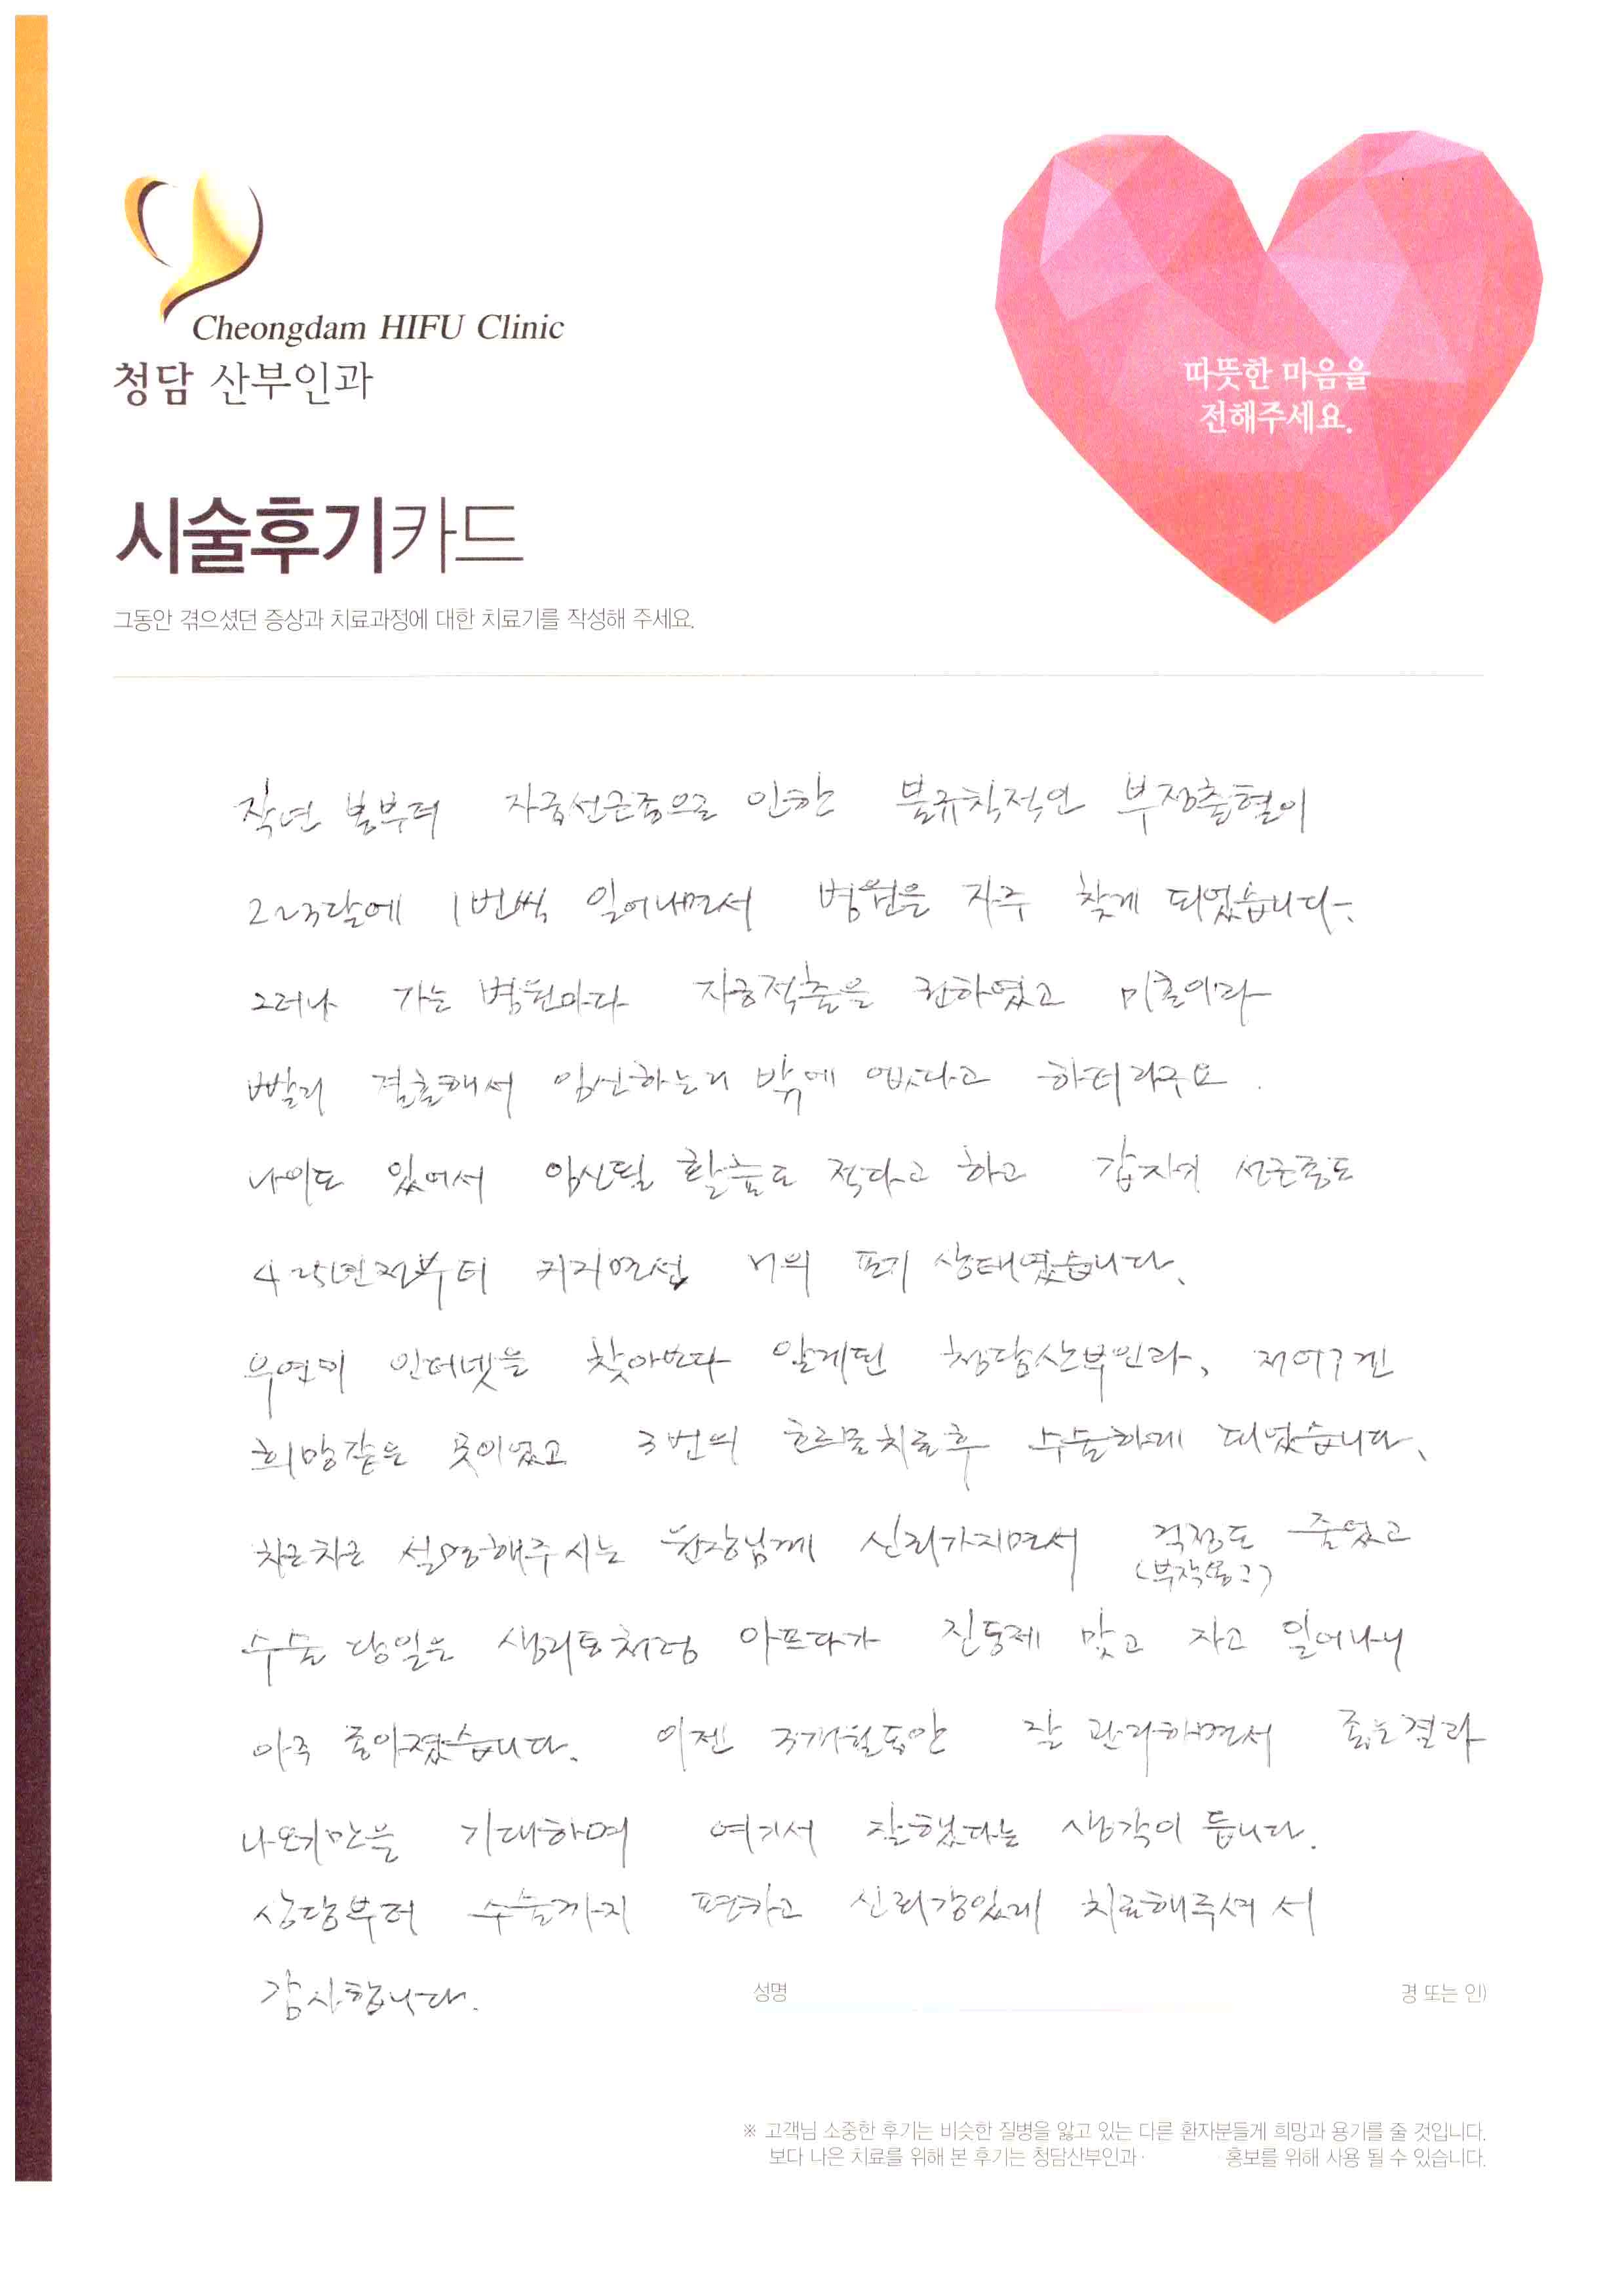 Cheongdam HIFU Clinic
청담 산부인과
따뜻한 마음을
전해주세요.
시술후기카드
그동안 겪으셨던 증상과 치료과정에 대한 치료기를 작성해 주세요.
작년 봄부터 자궁선근종으로 인한 불규칙적인 부정출혈이
2~3달에 1번씩 일어나면서 병원을 자주 찾게 되었습니다.
그러나 가는 병원마다 자궁적출을 권하였고 미혼이라
빨리 결혼해서 임신하는거 밖에 없다고 하더라구요.
나이도 있어서 임신될 확률도 적다고 하고 갑자기 선근종도
4~5년전부터 커지면서 거의 포기 상태였습니다.
우연히 인터넷을 찾아보다 알게된 청담산부인과, 저에겐
희망같은 곳이었고 3번의 호르몬치료후 수술하게 되었습니다.
차근차근 설명해주시는 원장님께 신뢰가지면서 걱정도 줄었고
(부작용그)
수술 당일은 생리통처럼 아프다가 진통제 맞고 자고 일어나니
아주 좋아졌습니다. 이젠 3개월동안 잘 관리하면서 좋은결과
나오기만을 기대하며 여기서 잘했다는 생각이 듭니다.
상담부터 수술까지 편하고 신뢰감있게 치료해주셔서
감사합니다.
성명 경 또는 인)
※ 고객님 소중한 후기는 비슷한 질병을 앓고 있는 다른 환자분들게 희망과 용기를 줄 것입니다.
보다 나은 치료를 위해 본 후기는 청담산부인과· 홍보를 위해 사용 될 수 있습니다.